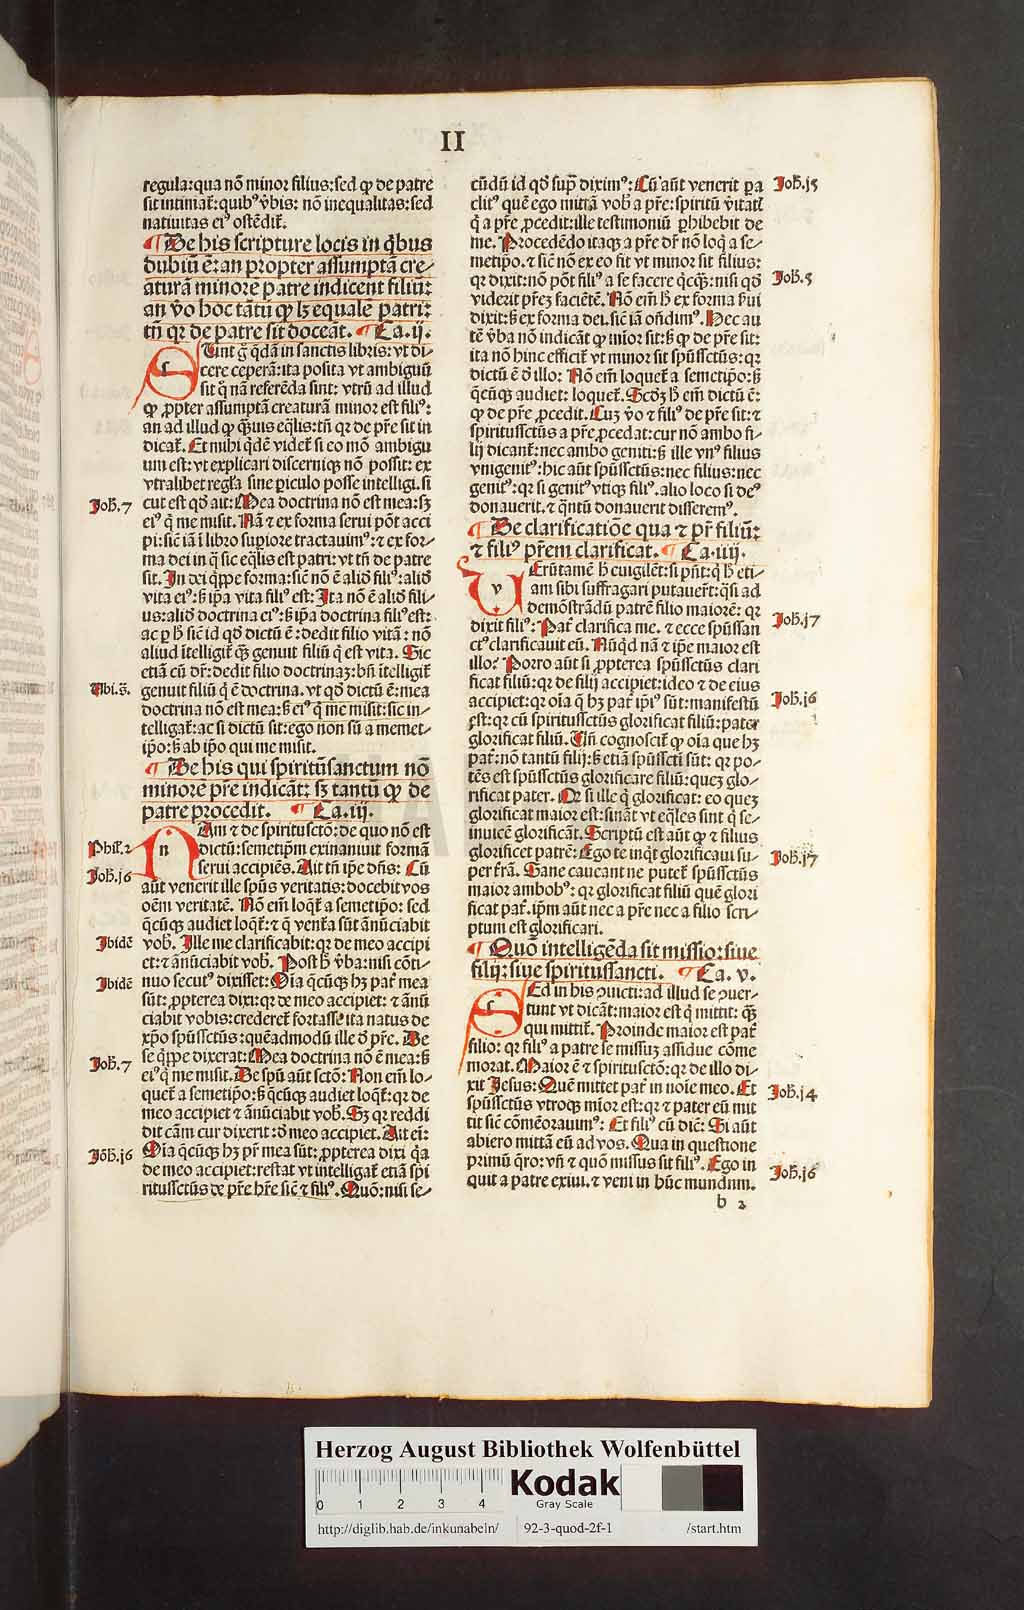 II
regula:qua nō minor filius:sed ꝙ de patre
sit intimat̄:quibꝰ v̄bis: nō inequalitas:sed
natiuitas eiꝰ ostēdit̄.
¶ De his scripture locis in qͥbus
dubiū ē:an propter assumptā cre/
aturā minorē patre indicent filiū:
an v̄o hoc tātū ꝙ lꝫ equalē patri:
tn̄ qꝛ de patre sit doceāt. ¶ Ca.ij.
SUnt g̊ q̄dā in sanctis libris: vt di/
cere ceperā:ita posita vt ambiguū
sit q̊ nā referēda sint: vtrū ad illud
ꝙ ꝓpter assumptā creaturā minor est filiꝰ:
an ad illud ꝙ q̄uis eq̄lis:tn̄ qꝛ de pr̄e sit in
dicat̄. Et mihi qͥdē videt̄ si eo mō ambigu
um est: vt explicari discerniqꝫ nō possit: ex
vtralibet regl̄a sine ꝑiculo posse intelligi. si
Joh̄.7
cut est qd̄ ait: Mea doctrina nō est mea:sꝫ
eiꝰ qͥ me misit. Nā ⁊ ex forma serui pōt acci
pi:sic iā ī libro suꝑiore tractauimꝰ:⁊ ex for/
ma dei in q̄ sic eq̄lis est patri: vt tn̄ de patre
sit. In dei q̄ppe forma:sic nō ē aliđ filiꝰ:aliđ
vita eiꝰ: ß ip̄a vita filiꝰ est: Ita nō ē aliđ fili/
us:aliđ doctrina eiꝰ:ß ip̄a doctrina filiꝰ est:
ac ꝑ h̄ sic̄ id qđ dictū ē: dedit filio vitā: nō
aliud ītelligit̄ q̄ genuit filiū qͥ est vita. Sic
etiā cū dr̄:dedit filio doctrinaꝫ:bn̄ ītelligit̄
Vbi.s̄.
genuit filiū qͥ ē doctrina. vt qđ dictū ē: mea
doctrina nō est mea:ß eiꝰ qͥ me misit:sic in/
telligat̄:ac si dictū sit:ego non sū a memet/
ip̄o:ß ab ip̄o qui me misit.
¶ De his qui spiritūsanctum nō
minorē pr̄e indicāt: sꝫ tantū ꝙ de
patre procedit. ¶ Ca.iij.
NAm ⁊ de spiritusctō: de quo nō est
Phil̄.2
dictū:semetip̄m exinaniuit formā
serui accipiēs. Ait tn̄ ip̄e dn̄s: Cū
Joh̄.j6
aūt venerit ille spūs veritatis:docebit vos
oēm veritatē. Nō em̄ loq̄t̄ a semetip̄o: sed
q̄cūqꝫ audiet loq̄t̄:⁊ q̄ vent̄a sūt ānūciabit
Ibidē
vob̄. Ille me clarificabit:qꝛ de meo accipi
et:⁊ ānūciabit vob̄. Post h̄ v̄ba:nisi cōti/
Ibidē
nuo secutꝰ dixisset: Oīa q̄cūqꝫ hꝫ pat̄ mea
sūt:ꝓpterea dixi:qꝛ de meo accipiet:⁊ ānū
ciabit vobis:crederet̄ fortasse ita natus de
xp̄o spūssctūs:queadmodū ille đ pr̄e. De
se q̄ppe dixerat: Mea doctrina nō ē mea:ß
Joh̄.7
eiꝰ qͥ me misit. De spū aūt sctō: Non em̄ lo/
quet̄ a semetip̄o:ß q̄cūqꝫ audiet loq̄t̄:qꝛ de
meo accipiet ⁊ ānūciabit vob̄. Sꝫ qꝛ reddi
dit cām cur dixerit:đ meo accipiet. Ait em̄:
Joh̄.j6
Oīa q̄cūqꝫ hꝫ pr̄ mea sūt: ꝓpterea dixi qꝛ
de meo accipiet:restat vt intelligat̄ etiā spi
ritussctūs de pr̄e hr̄e sic̄ ⁊ filiꝰ. Quō:nisi se/
cūdū id qđ sup̄ diximꝰ: Cū aūt venerit ꝑa
Joh̄.j5
clitꝰ quē ego mittā vob̄ a pr̄e: spiritū v̄itatꝭ
qͥ a pr̄e ꝓcedit:ille testimoniū ꝑhibebit de
me. Procedēdo itaqꝫ a pr̄e dr̄ nō loqͥ a se/
metip̄o.⁊ sic̄ nō ex eo fit vt minor sit filius:
qꝛ dixit:nō pōt filiꝰ a se facere q̄cqꝫ:nisi qđ
Joh̄.5
viderit pr̄eꝫ faciētē. Nō em̄ h̄ ex forma ẜui
dixit:ß ex forma dei.sic̄ iā on̄dimꝰ. Hec au
tē v̄ba nō indicāt ꝙ mīor sit:ß ꝙ de pr̄e sit:
ita nō hinc efficit̄ vt minor sit spūssctūs:qꝛ
dictū ē đ illo: Nō em̄ loquet̄ a semetip̄o:ß
q̄cūqꝫ audiet: loquet̄. Scđꝫ h̄ em̄ dictū ē:
ꝙ de pr̄e ꝓcedit. Cuꝫ v̄o ⁊ filiꝰ de pr̄e sit:⁊
spiritussctūs a pr̄e ꝓcedat:cur nō ambo fi/
lij dicant̄:nec ambo geniti:ß ille vnꝰ filius
vnigenitꝰ:hic aūt spūssctūs:nec filius:nec
genitꝰ:qꝛ si genitꝰ vtiqꝫ filiꝰ.alio loco si deꝰ
donauerit.⁊ qn̄tū donauerit disseremꝰ.
¶ De clarificatiōe qua ⁊ pr̄ filiū:
⁊ filiꝰ pr̄em clarificat. ¶ Ca.iiij.
VErūtamē h̄ euigilēt:si pn̄t:qͥ h̄ eti/
am sibi suffragari putauert̄:q̄si ad
demōstrādū patrē filio maiorē: qꝛ
Joh̄.j7
dixit filiꝰ: Pat̄ clarifica me. ⁊ ecce spūssan
ctꝰ clarificauit eū. Nūqd nā ⁊ ip̄e maior est
illo: Porro aūt si ꝓpterea spūssctūs clari
ficat filiū:qꝛ de filij accipiet:ideo ⁊ de eius
Joh̄.j6
accipiet:qꝛ oīa q̄ hꝫ pat̄ ip̄iꝰ sūt:manifestū
est:qꝛ cū spiritussctūs glorificat filiū:pater
glorificat filiū. Un̄ cognoscit̄ ꝙ oīa que hꝫ
pat̄:nō tantū filij:ß etiā spūsscti sūt: qꝛ po/
tēs est spūssctūs glorificare filiū:queꝫ glo/
rificat pater. Qꝛ si ille qͥ glorificat: eo queꝫ
glorificat maior est:sināt vt eq̄les sint qͥ se/
inuicē glorificāt. Scriptū est aūt ꝙ ⁊ filius
glorificet patrē: Ego te inqͥt glorificaui su/
Joh̄.j7
per t̄rā. Sane caucant ne putet̄ spūssctūs
maior ambobꝰ: qꝛ glorificat filiū quē glori
ficat pat̄. ip̄m aūt nec a pr̄e nec a filio scri/
ptum est glorificari.
¶ Quō intelligēda sit missio: siue
filij: siue spiritussancti. ¶ Ca. v.
SEd in his ꝯuicti:ad illud se ꝯuer/
tunt vt dicāt: maior est qͥ mittit: q̄
qui mittit̄. Proinde maior est pat̄
filio: qꝛ filiꝰ a patre se missuꝫ assidue cōme
morat. Maior ē ⁊ spiritusctō: qꝛ de illo di/
xit Jesus: Quē mittet pat̄ in noīe meo. Et
Joh̄.j4
spūssctūs vtroqꝫ mīor est:qꝛ ⁊ pater eū mit
tit sic̄ cōmēorauimꝰ: Et filiꝰ cū dic̄: Si aūt
abiero mittā eū ad vos. Qua in questione
primū qͦro: vn̄ ⁊ quō missus sit filiꝰ. Ego in
Joh̄.j6
quit a patre exiui. ⁊ veni in hūc mundum.
b 2
Herzog August Bibliothek Wolfenbüttel
0 1 2 3 4
Kodak
Gray Scale
http://diglib.hab.de/inkunabeln/ 92-3-quod-2f-1 /start.htm